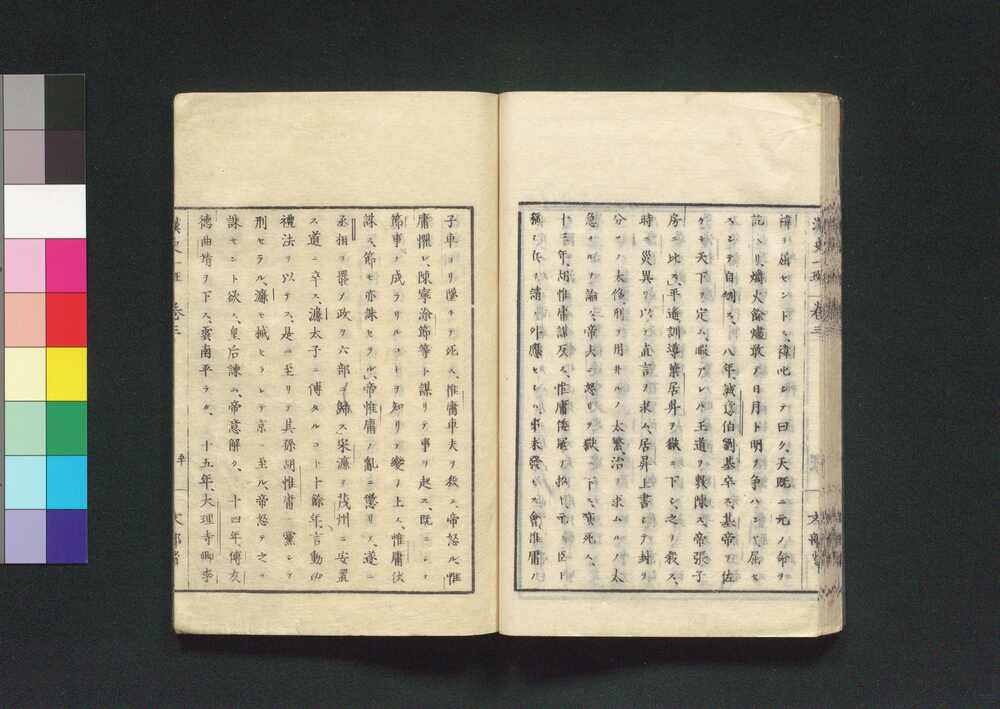 禕ヲ屈セントス、禕叱シテ曰ク、天既ニ元ノ命ヲ
訖ヘリ、爝火餘燼敢テ日月ト明ヲ争ハンヤト、屈セ
スシテ自剄ス、八年、誠意伯劉基卒ス、基帝ヲ佐
ケテ天下ヲ定ム、暇アレハ王道ヲ敷陳ス、帝張子
房ニ比ス、平遥訓導葉居昇ヲ獄ニ下シ、之ヲ殺ス、
時ニ災異ヲ以テ直言ヲ求ム、居昇上書シテ封ヲ
分ツノ太侈、刑ヲ用ヰルノ太繁、治ヲ求ムルノ太
急ナルヲ論ス、帝大ニ怒リテ獄ニ下ス、瘐死ス、
十三年、胡惟庸謀反ス、惟庸倭冦ヲ招
稱シ兵ヲ請ヒ外應セシム、事未發セス、會惟庸ノ
漢史一班 巻三
子車ヨリ墜チテ死ス、惟庸車夫ヲ殺ス、帝怒ル、惟
庸懼レ、陳寧涂節等ト謀リテ事ヲ起ス、既ニシテ
節事ノ成ラサルコトヲ知リテ變ヲ上ス、惟庸伏
誅ス、節モ亦誅セラル、帝惟庸ノ亂ニ懲リ、遂ニ
丞相ヲ罷メ政ヲ六部ニ歸ス、宋濂ヲ茂州ニ安置
ス、道ニ卒ス、濂太子ニ傅タルコト十餘年、言動必
禮法ヲ以テス、是ニ至リテ其孫胡惟庸ニ黨シテ
刑セラル、濂モ械セラレテ京ニ至ル、帝怒テ之ヲ
誅セント欲ス、皇后諫ム、帝意解ク、十四年、傅友
德曲靖ヲ下ス、雲南平ラク、十五年、大理寺卿李
漢史一班 巻三
文部省